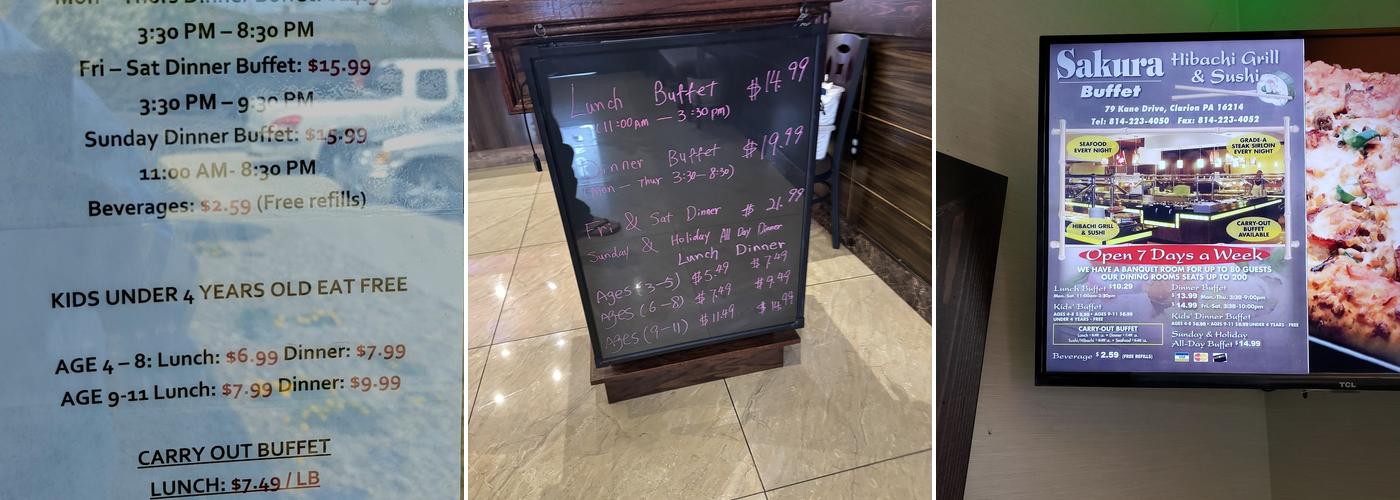 Mon – Thurs Dinner Buffet: $14.99
3:30 PM – 8:30 PM
Fri – Sat Dinner Buffet: $15.99
3:30 PM – 9:30 PM
Sunday Dinner Buffet: $15.99
11:00 AM- 8:30 PM
Beverages: $2.59 (Free refills)
KIDS UNDER 4 YEARS OLD EAT FREE
AGE 4 – 8: Lunch: $6.99 Dinner: $7.99
AGE 9-11 Lunch: $7.99 Dinner: $9.99
CARRY OUT BUFFET
LUNCH: $7.49 / LB
Lunch Buffet $14.99
(11:00AM — 3:30pm)
Dinner Buffet $19.99
(Mon — Thur 3:30—8:30)
Fri & Sat Dinner $ 21.99
Sunday & Holiday All Day Dinner
Lunch Dinner
Ages (3-5) $5.49 $7.49
Ages (6-8) $7.49 $9.49
Ages (9-11) $11.49 $14.99
Sakura Hibachi Grill
Buffet & Sushi
79 Kane Drive, Clarion PA 16214
Tel: 814-223-4050 Fax: 814-223-4052
SEAFOOD
EVERY NIGHT
GRADE-A
STEAK SIRLOIN
EVERY NIGHT
HIBACHI GRILL
& SUSHI
CARRY-OUT
BUFFET
AVAILABLE
Open 7 Days a Week
WE HAVE A BANQUET ROOM FOR UP TO 80 GUESTS
OUR DINING ROOMS SEATS UP TO 200
Lunch Buffet $10.29
Mon.-Sat. 11:00am-3:30pm
Kids' Buffet
UNDER 4 YEARS - FREE
CARRY-OUT BUFFET
Dinner Buffet
$13.99 Mon.-Thu. 3:30-9:00pm
$14.99 Fri.-Sat. 3:30-10:00pm
Kids' Dinner Buffet
Sunday & Holiday
All-Day Buffet $14.99
Beverage $2.59 (FREE REFILLS)
TCL